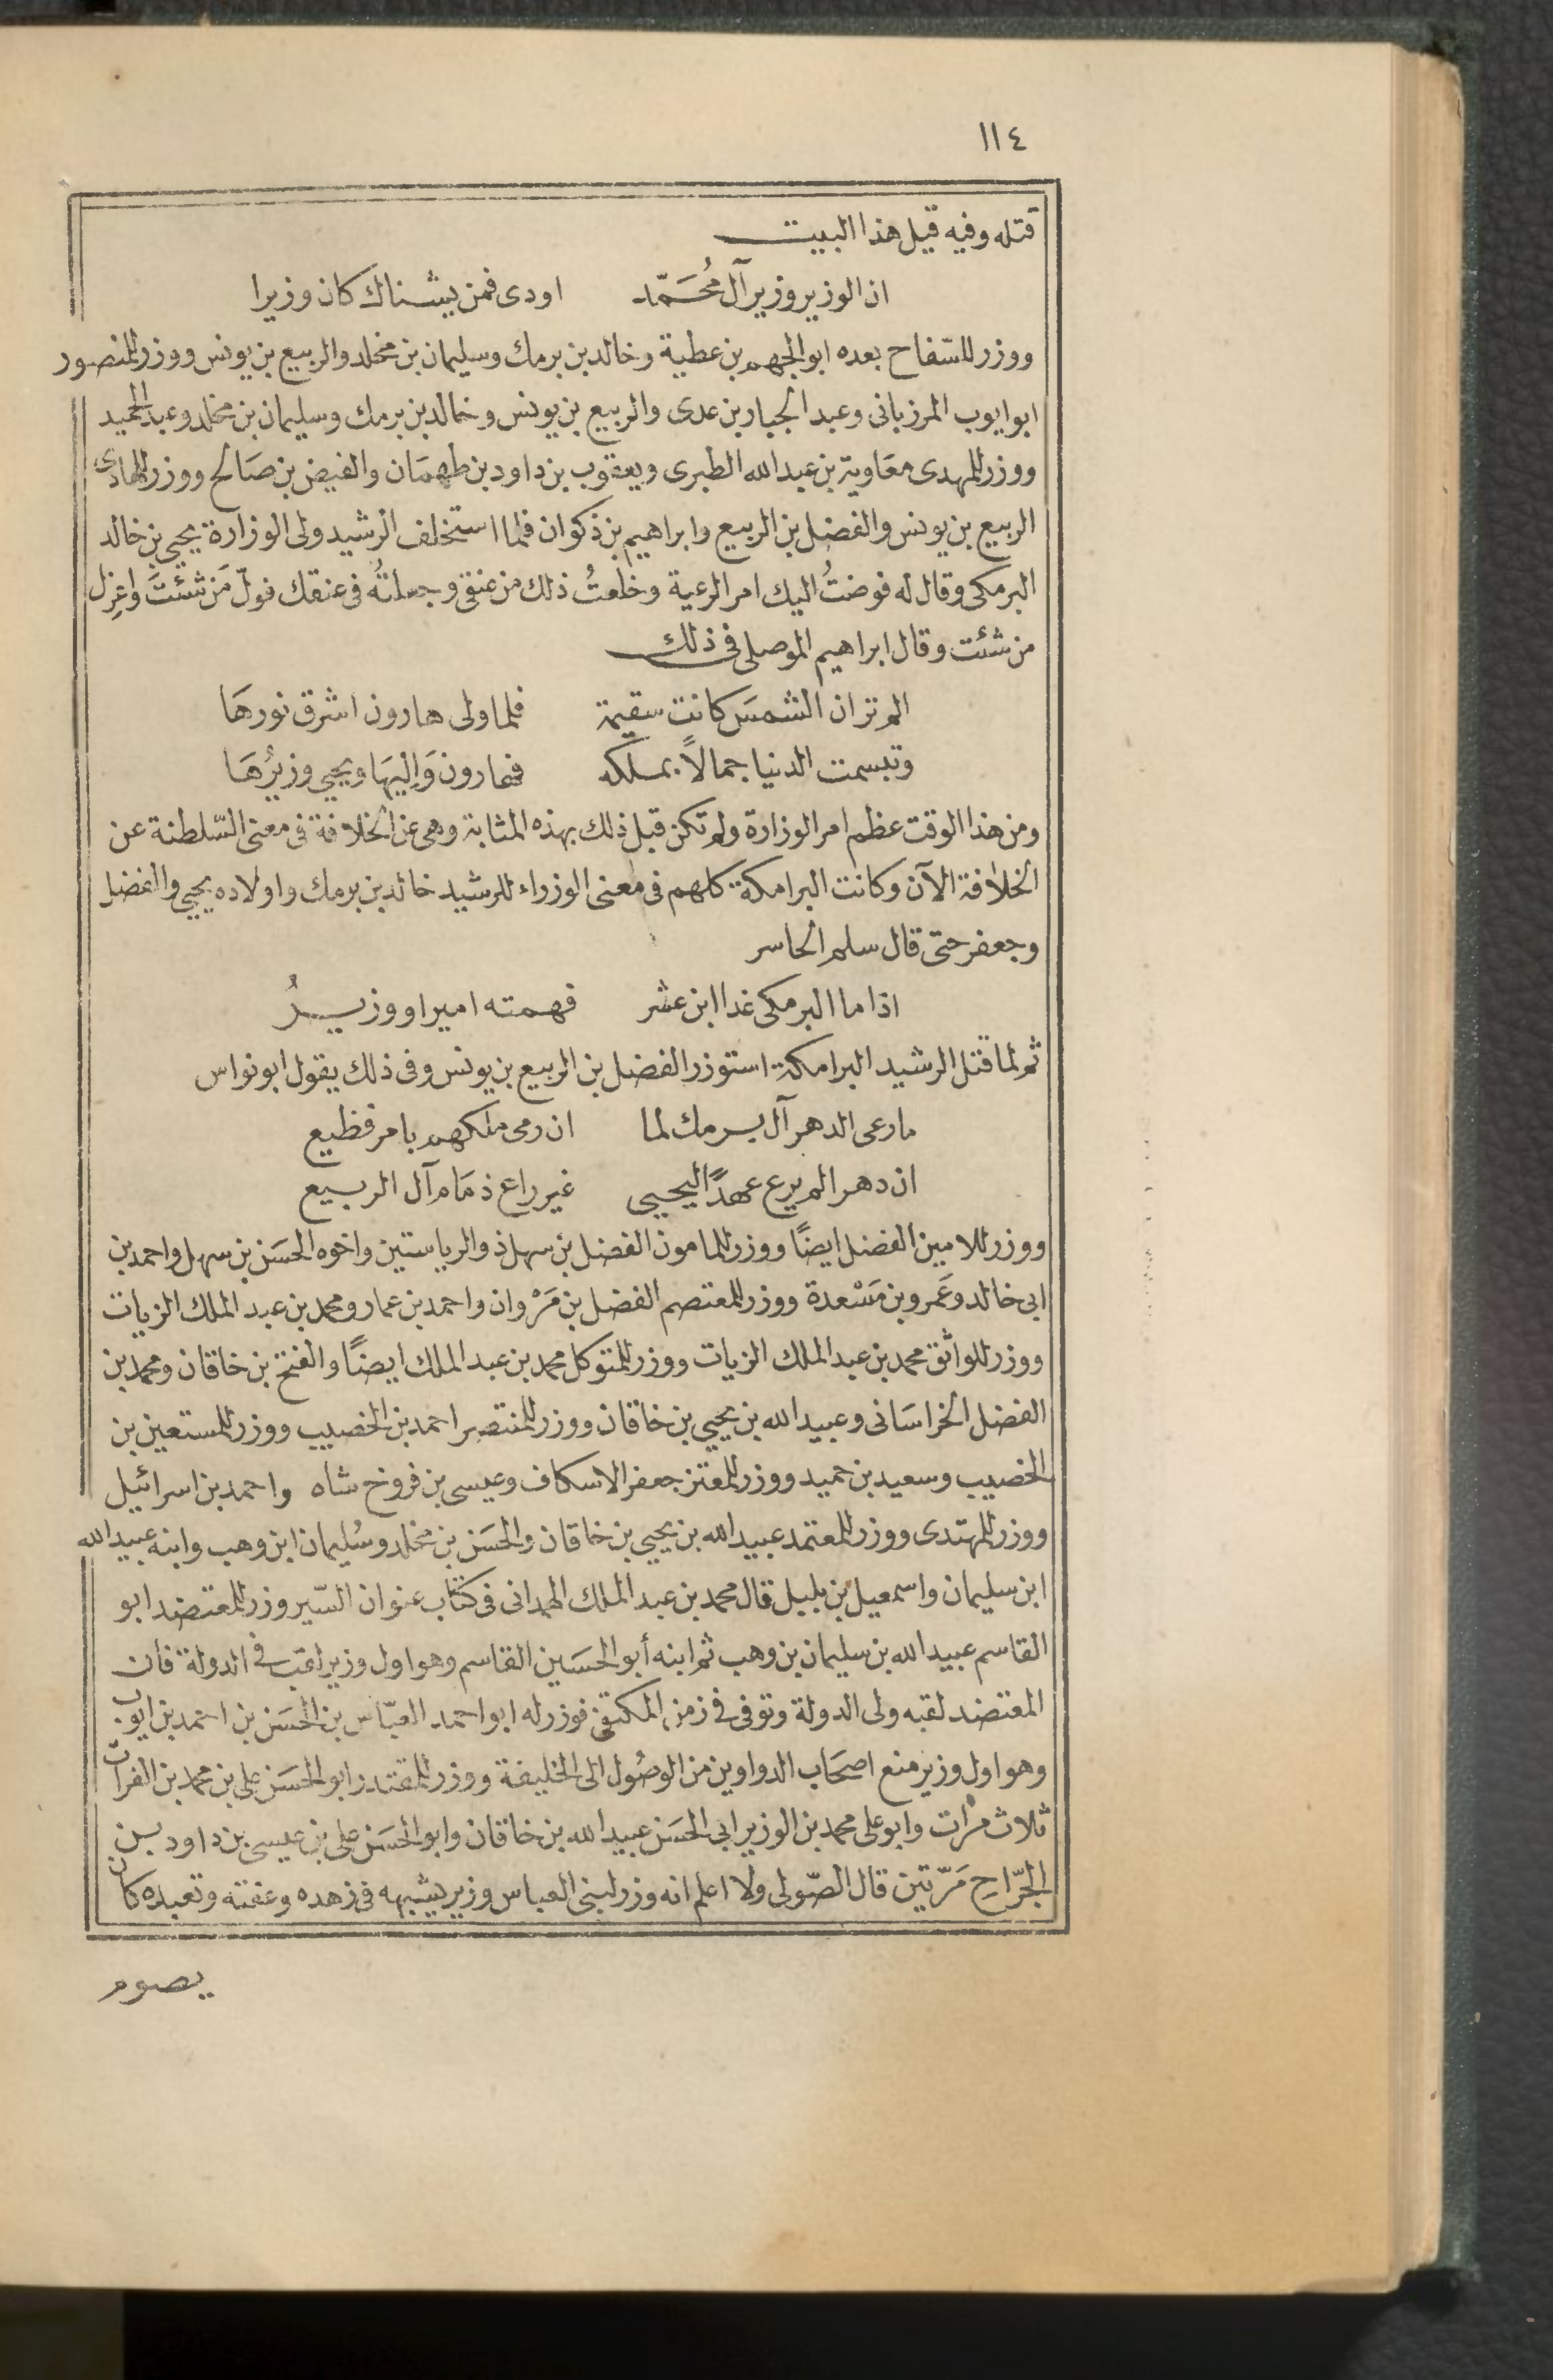 ١١٤
قتله وفيه قيل هذا البيت
ان الوزير وزير آل مُحَمّد اودى فمن يشناك كان وزيرا
ووزر للسّفاح بعده ابو الجهم بن عطية وخالد بن برمك وسليمان بن مخلد والربيع بن يونس ووزر للمنصور
ابو ايوب المرزبانى وعبد الجبار بن عدى والربيع بن يونس وخالد بن برمك وسليمان بن مخلد وعبد الحميد
ووزر للمهدى معَاوية بن عبد الله الطبرى ويعقوب بن داود بن طهمَان والفيض بن صَالح ووزر للهادى
الربيع بن يونس والفضل بن الربيع وابراهيم بن ذكوان فلما استخلف الرشيد ولى الوزارة يحيى بن خالد
البرمكى وقال له فوضتُ اليك امر الرعية وخلعتُ ذلك من عنقى وجعلتُه فى عنقك فولّ مَن شئتَ واعزِل
من شئت وقال ابراهيم الموصلى فى ذلك
الم تر ان الشمسَ كانت سقيمة فلما ولى هارون اشرق نورهَا
وتبسمت الدنيا جمالاً بملكه فهارون وَاليهَا ويحيى وزيرُهَا
ومن هذا الوقت عظم امر الوزارة ولم تكن قبل ذلك بهذه المثابة وهى عن الخلافة فى معنى السّلطنة عن
الخلافة الآن وكانت البرامكة كلهم فى معنى الوزراء للرشيد خالد بن برمك واولاده يحيى والفضل
وجعفر حتى قال سلم الخاسر
اذا ما البرمكى غدا ابن عشر فهمته امير او وزيرُ
ثم لما قتل الرشيد البرامكة استوزر الفضل بن الربيع بن يونس وفى ذلك يقول ابو نواس
ما رعى الدهر آل برمك لما ان رمى ملكهم بامر فظيع
ان دهرا لم يرع عهدًا ليحيى غير راع ذمَام آل الربيع
ووزر للامين الفضل ايضًا ووزر للمامون الفضل بن سهل ذو الرياستين واخوه الحسَن بن سهل واحمد بن
ابى خالد وعَمرو بن مَسْعدة ووزر للمعتصم الفضل بن مَرْوان واحمد بن عمار ومحمد بن عبد الملك الزيات
ووزر للواثق محمد بن عبد الملك الزيات ووزر للمتوكل محمد بن عبد الملك ايضًا والفتح بن خاقان ومحمد بن
الفضل الخراسَانى وعبيد الله بن يحيى بن خاقان ووزر للمنتصر احمد بن الخصيب ووزر للمستعين بن
الخصيب وسعيد بن حميد ووزر للمعتز جعفر الاسكاف وعيسى بن فروخ شاه واحمد بن اسرائيل
ووزر للمهتدى ووزر للمعتمد عبيد الله بن يحيى بن خاقان والحسَن بن مخلد وسُليمان ابن وهب وابنه عبيد الله
ابن سليمان واسمعيل بن بلبل قال محمد بن عبد الملك الهمدانى فى كتاب عنوان السّير وزر للمعتضد ابو
القاسم عبيد الله بن سليمان بن وهب ثم ابنه أبو الحسَين القاسم وهو اول وزير لقب فى الدولة فان
المعتضد لقبه ولى الدولة وتوفى فى زمن المكتفى فوزر له ابو احمد العبّاس بن الحسَن بن احمد بن ايوب
وهو اول وزير منع اصحَاب الدواوين من الوصُول الى الخليفة ووزر للمقتدر ابو الحسَن على بن محمد بن الفرات
ثلاث مرات وابو على محمد بن الوزير ابى الحسَن عبيد الله بن خاقان وابو الحسَن على بن عيسى بن داود بن
الجرّاح مَرّتين قال الصّولى ولا اعلم انه وزر لبنى العباس وزير يشبهه فى زهده وعفته وتعبده كان
يصوم